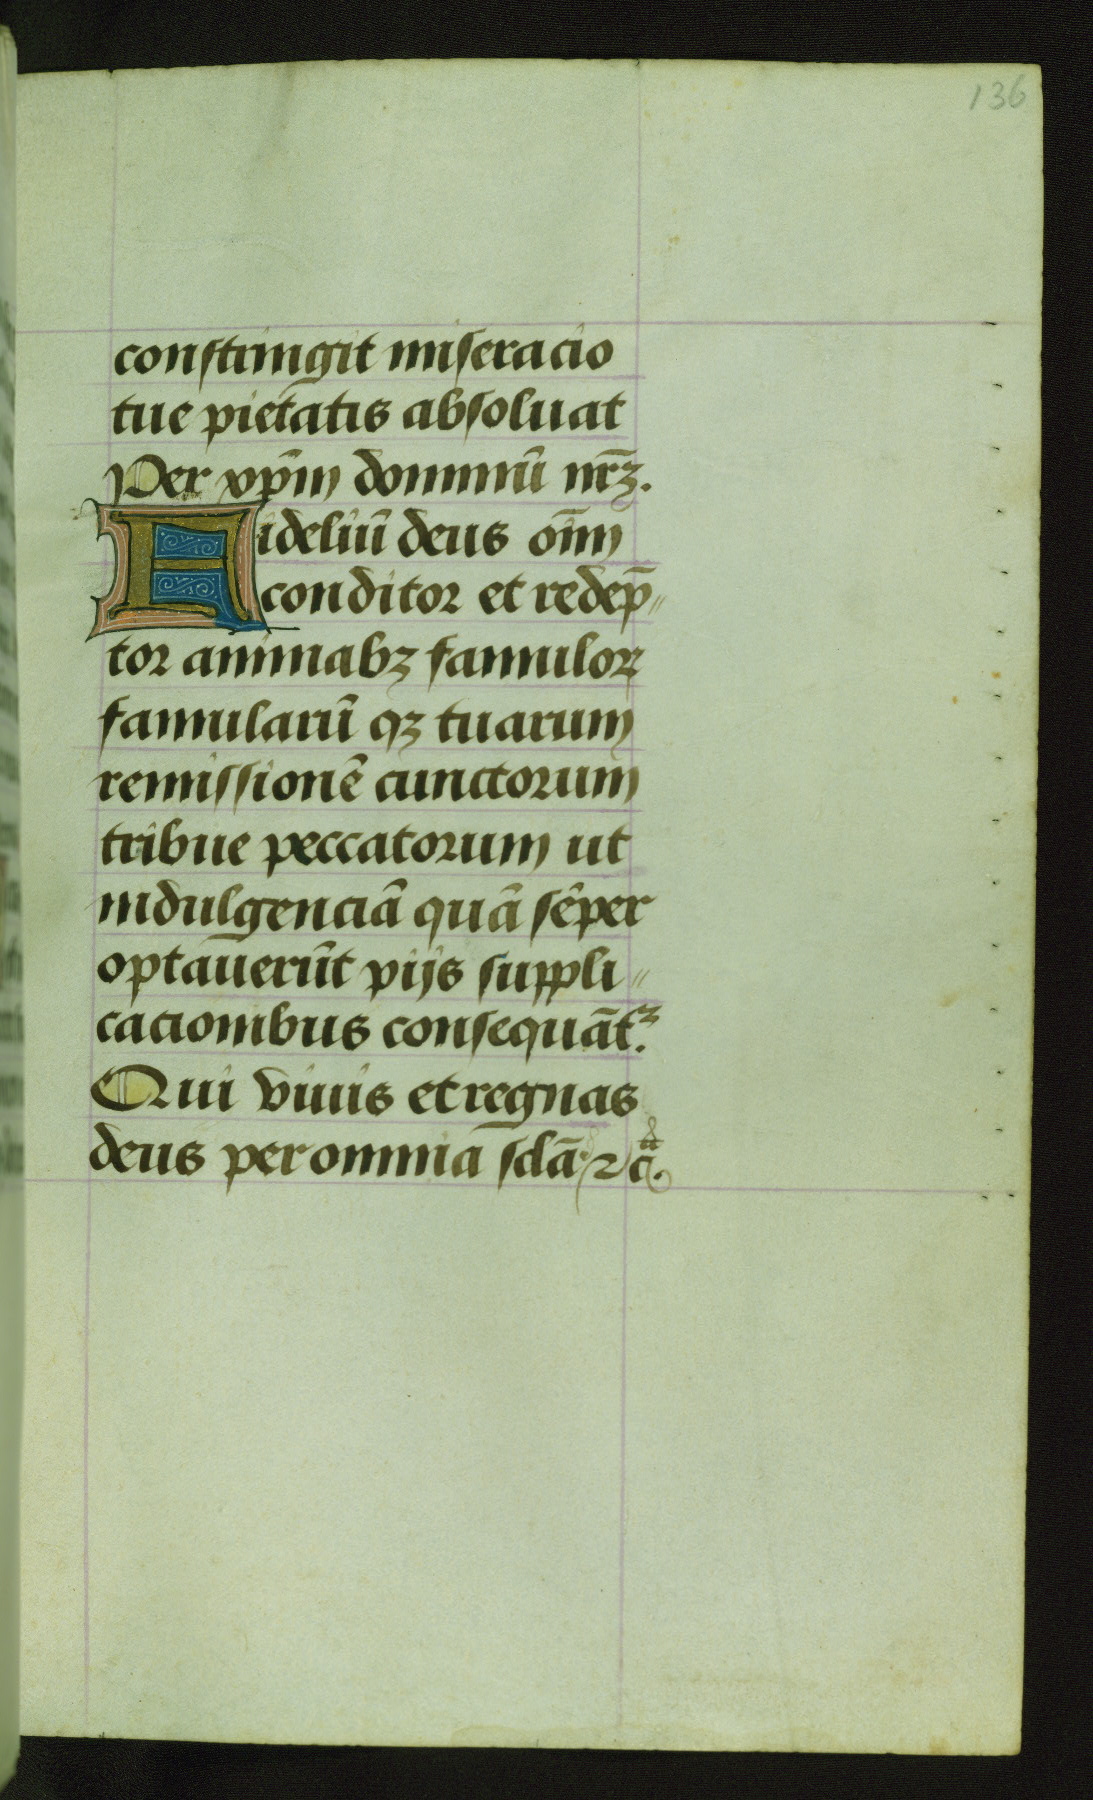 136
constringit miseracio
tue pietatis absoluat
Per xp̄m dominū nr̄ꝫ.
Fideliū deus om̄
conditor et redep̄〃
tor animabꝫ famuloꝝ
famularū qꝫ tuarum
remissionē cunctorum
tribue peccatorum ut
indulgenciā quā sēper
optauerūt pijs suppli〃
cacionibus consequāt.ᷣ
Qui viuis et regnas
deus per omnia sclā. ⁊ cͣ.